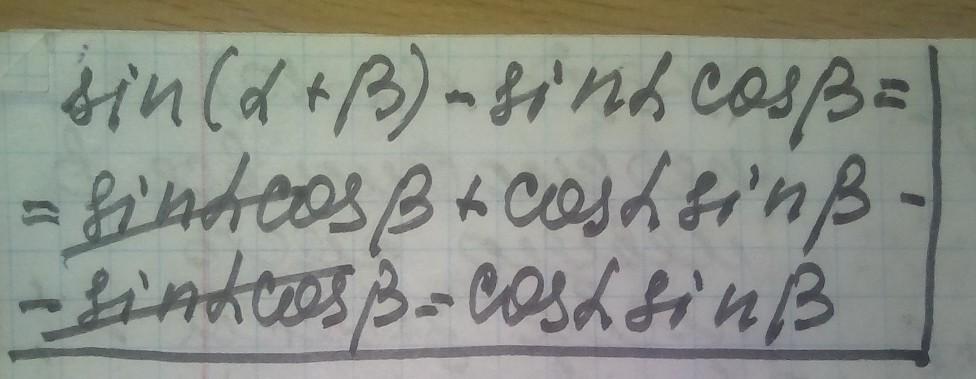 sin(α+β)-sinα cosβ=
= sinα cosβ + cosα sinβ -
- sinα cosβ = cosα sinβ